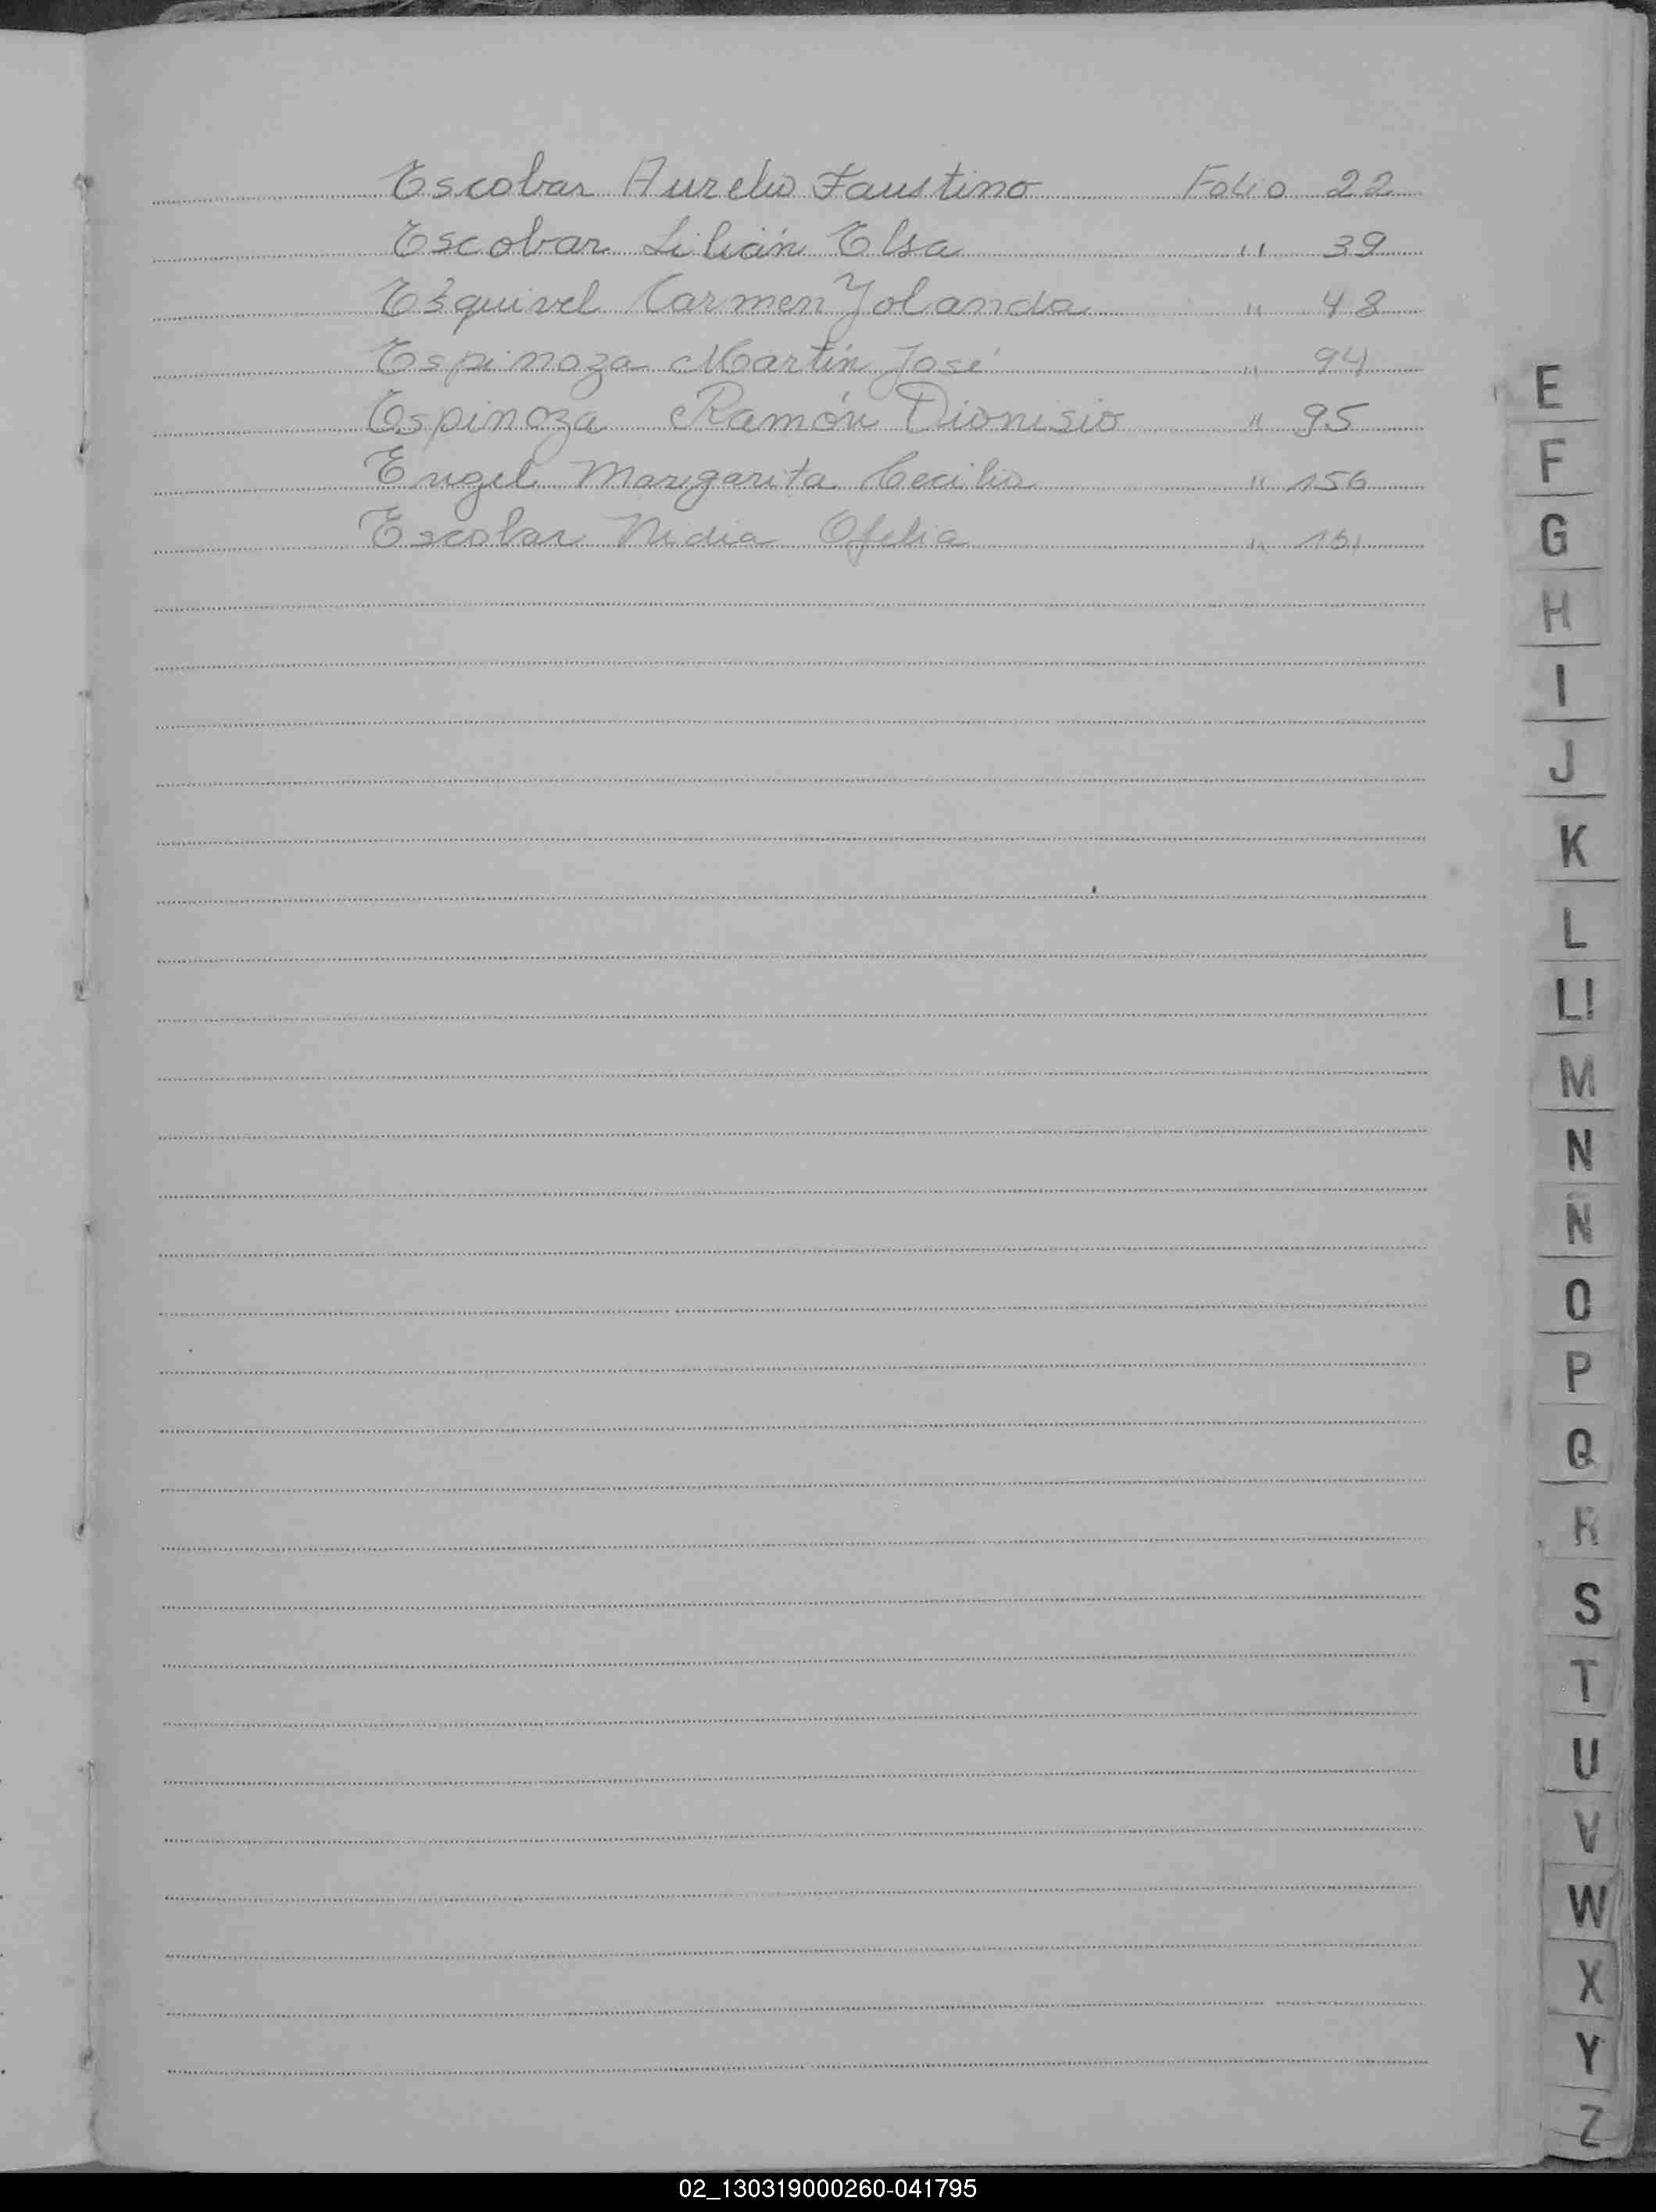 Escobar Aurelio Faustino Folio 22
Escobar Lilián Elsa " 39
Esquivel Carmen Yolanda " 48
Espinoza Martín José " 94
Espinoza Ramón Dionisio " 95
Engel Margarita Cecilia " 156
Escobar Nidia Ofelia " 151
E
F
G
H
I
J
K
L
Ll
M
N
Ñ
O
P
Q
R
S
T
U
V
W
X
Y
Z
02_130319000260-041795